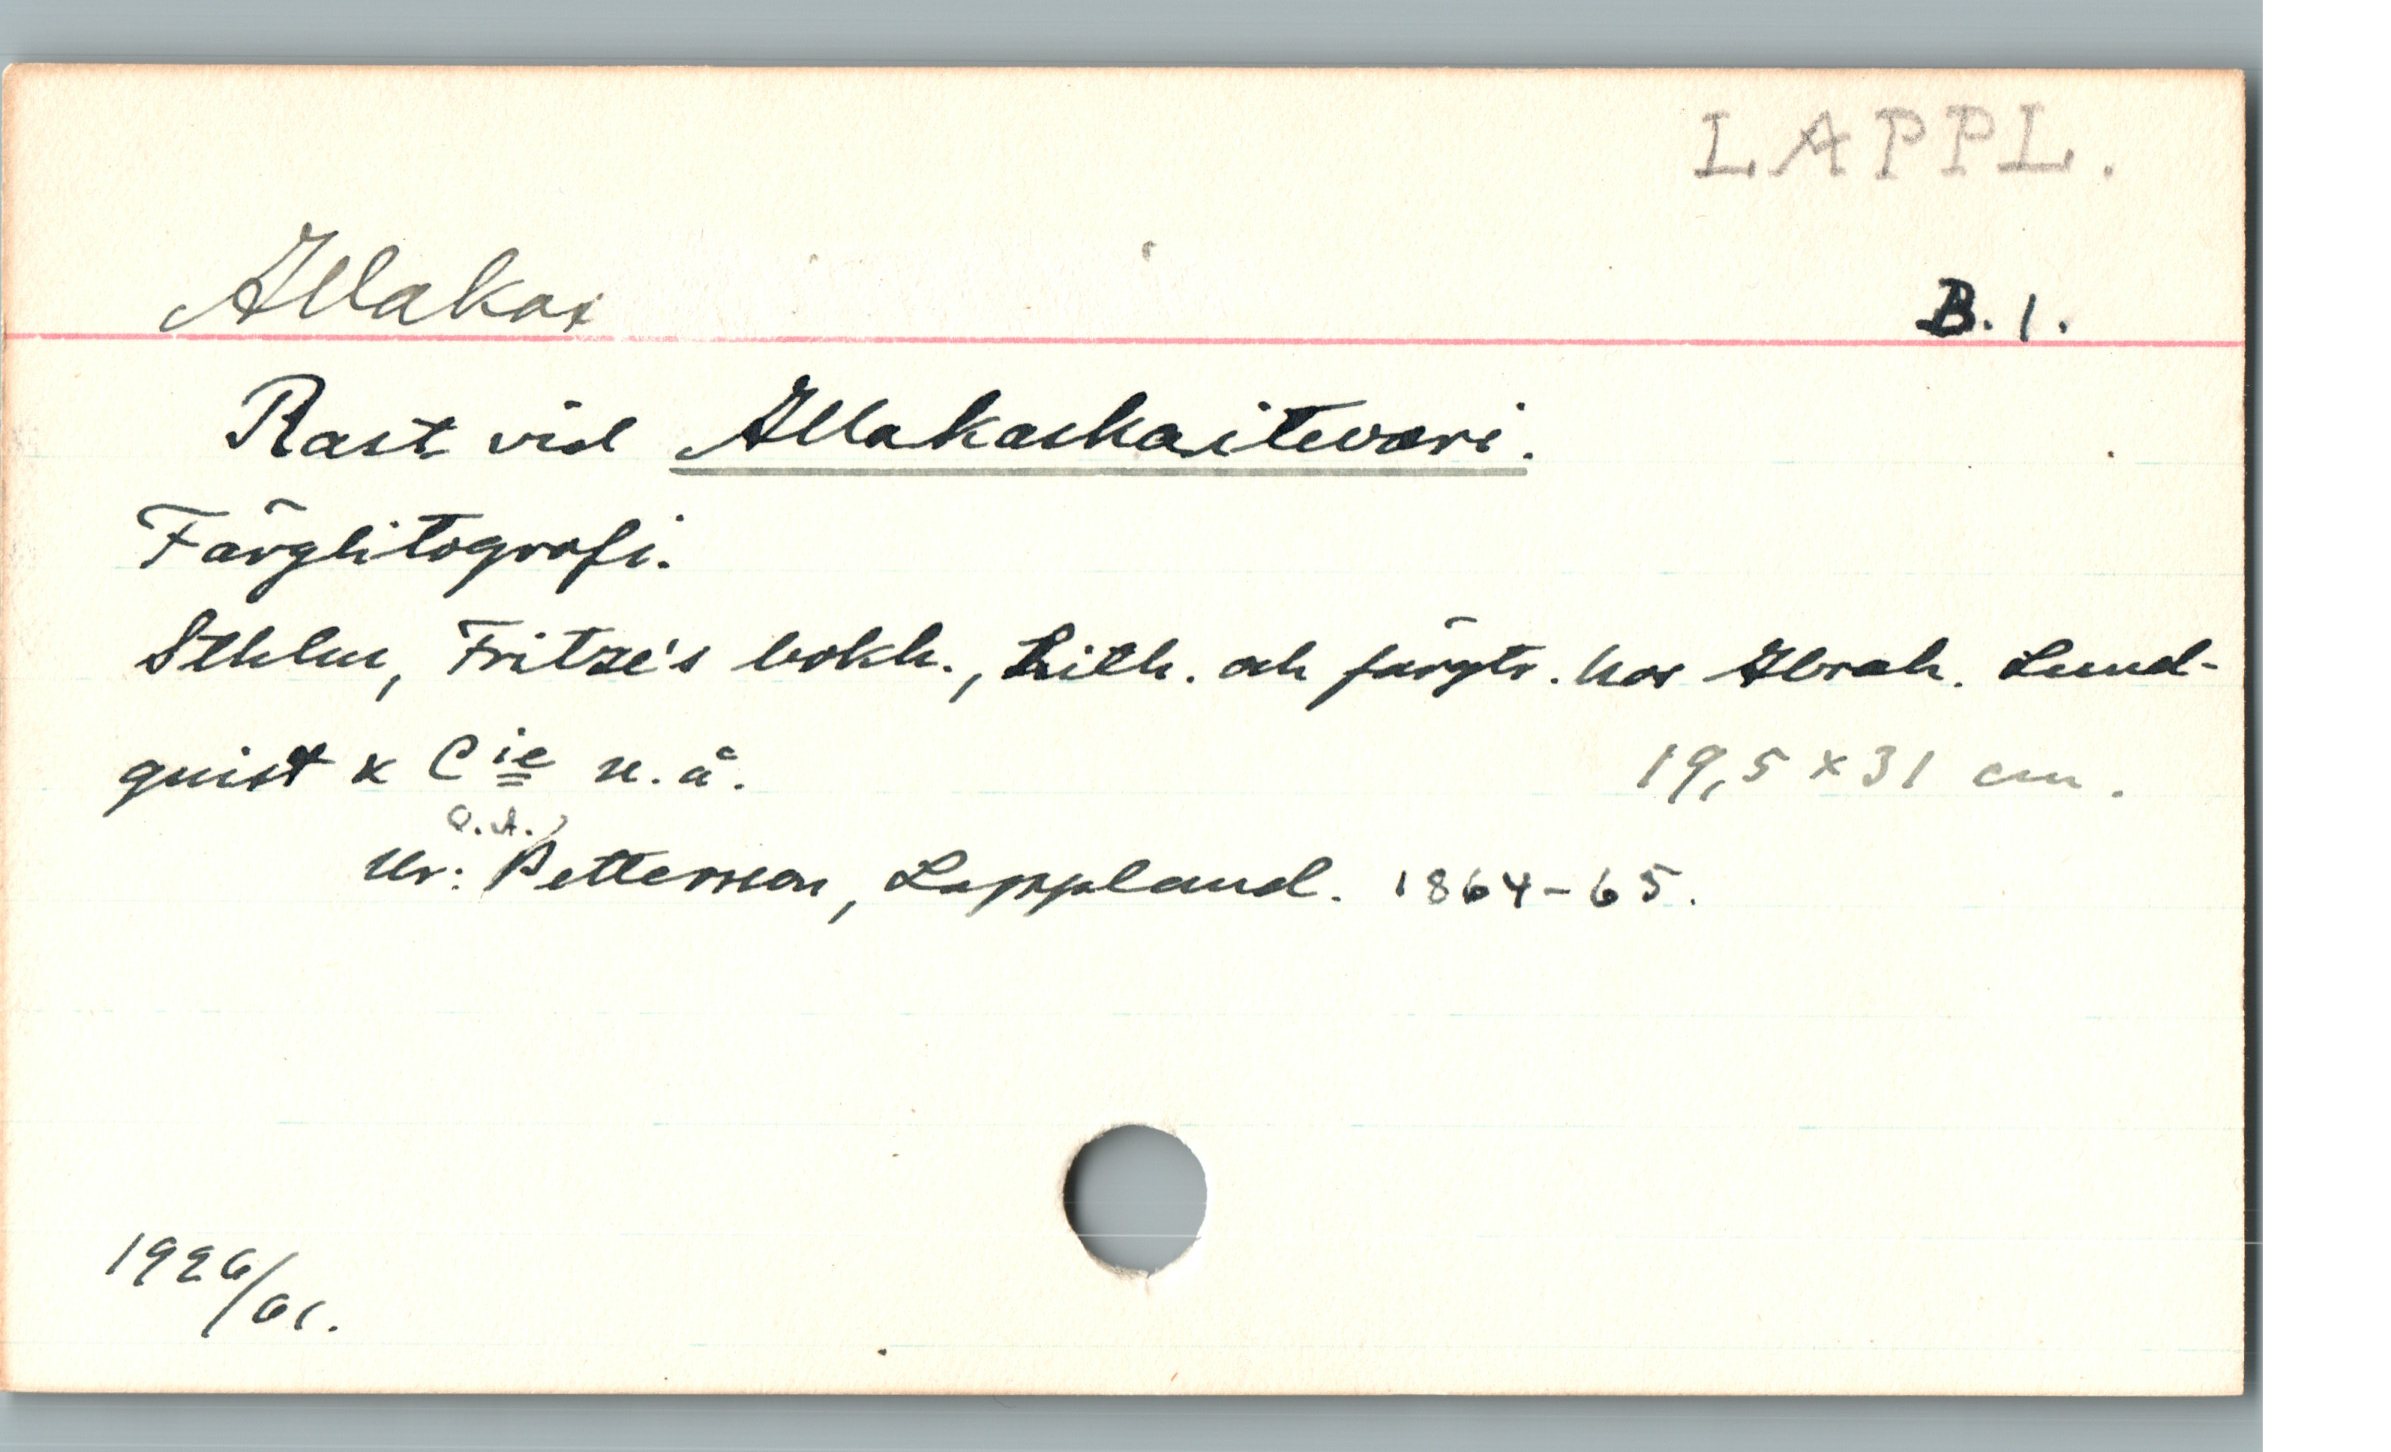 LAPPL.
Allakas
B. 1.
Rast vid Allakaskaitevari.
Färglitografi.
Sthlm, Fritze's bokh., Lith. och färgtr. hos Abrah. Lund-
quist & Cie u. å.
19,5 x 31 cm.
C.A.
Ur: Petterson, Lappland. 1864-65.
1926/61.